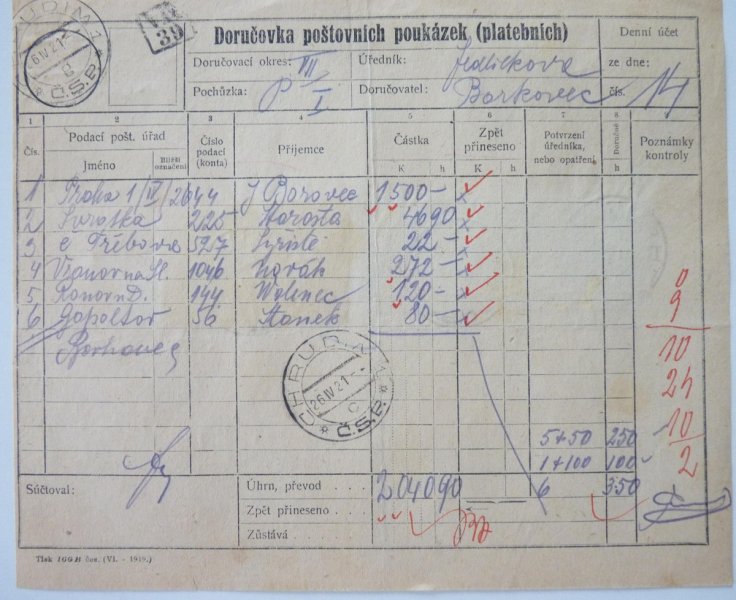 CHRUDIM 1
26 IV 21
c
Č.S.P.
39
Doručovka poštovních poukázek (platebních)
Denní účet
Doručovací okres: III
Úředník: Jedličkova
ze dne:
Pochůzka: P I
Doručovatel: Borkovec
čís. 14
1 2 3 4 5 6 7 8 9
Čís. Podací pošt. úřad Jméno Bližší označení Číslo podací (konta) Příjemce Částka K h Zpět přineseno K h Potvrzení úředníka, nebo opatření Doručné h Poznámky kontroly
1 Praha 1/IV/ 2644 J Borovec 1500 —
2 Svratka 225 Starosta 46 90
3 C Třebova 527 22 —
4 Vranov na 1046 Novák 272 —
5 Ronov n D. 144 120 —
6 56 Stanek 80 —
9
10
24
10
2
CHRUDIM 1
26 IV 21
c
Č.S.P.
5+50 250
1+100 100
6 350
Súčtoval:
Úhrn, převod . . . . 2040 90
Zpět přineseno . . . .
Zůstává . . . .
Tisk 166B čes. (VI. - 1919.)